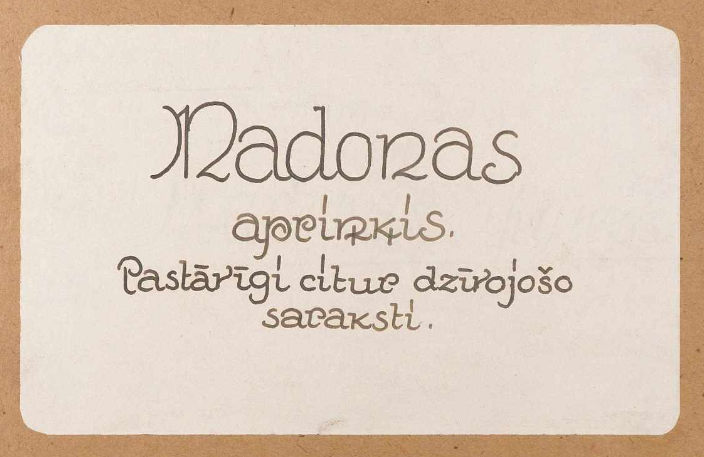 Madonas
apriņķis.
Pastāvīgi citur dzīvojošo
saraksti.